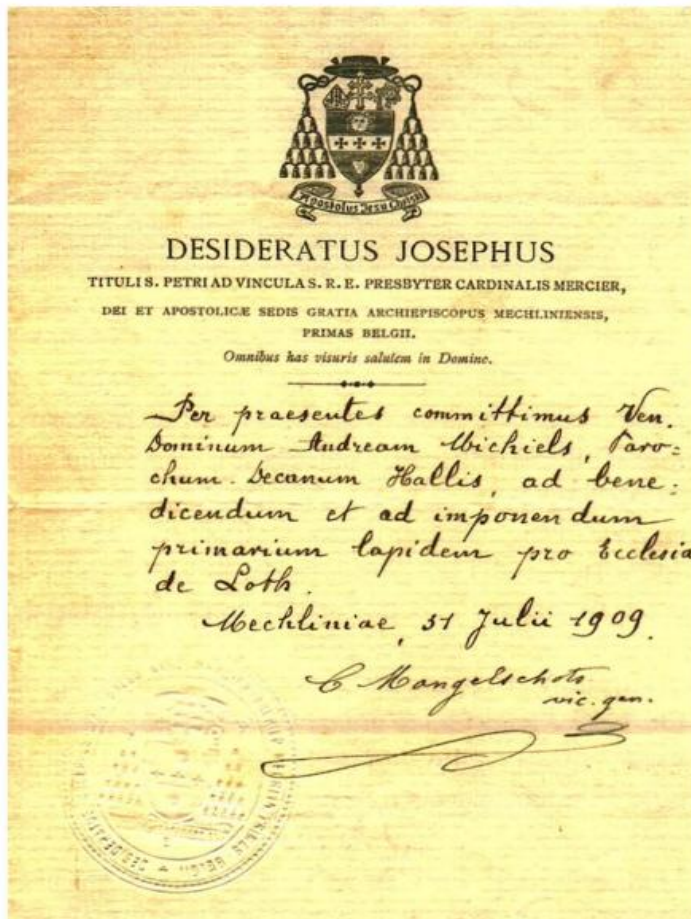 Apostolus Jesu Christi
DESIDERATUS JOSEPHUS
TITULI S. PETRI AD VINCULA S. R. E. PRESBYTER CARDINALIS MERCIER,
DEI ET APOSTOLICÆ SEDIS GRATIA ARCHIEPISCOPUS MECHLINIENSIS,
PRIMAS BELGII.
Omnibus has visuris salutem in Domino.
Per praesentes committimus Ven.
Dominum Andream Michiels, Paro=
chum-Decanum Hallis, ad bene=
dicendum et ad imponendum
primarium lapidem pro Ecclesia
de Loth.
Mechliniae, 31 Julii 1909.
C Mangelschots
vic. gen.